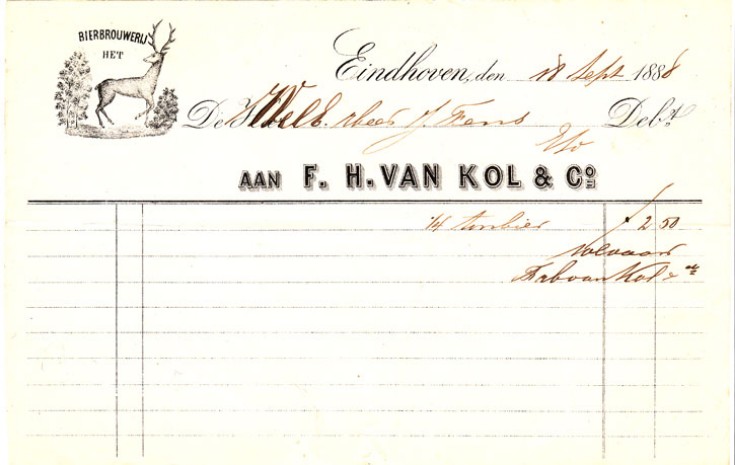 BIERBROUWERIJ
HET
Eindhoven, den 18 Sept 1888
De Heer J. Fens Debt.
AAN F. H. VAN KOL & Co
1/4 ton bier f 2 50
Voldaan
F H van Kol &